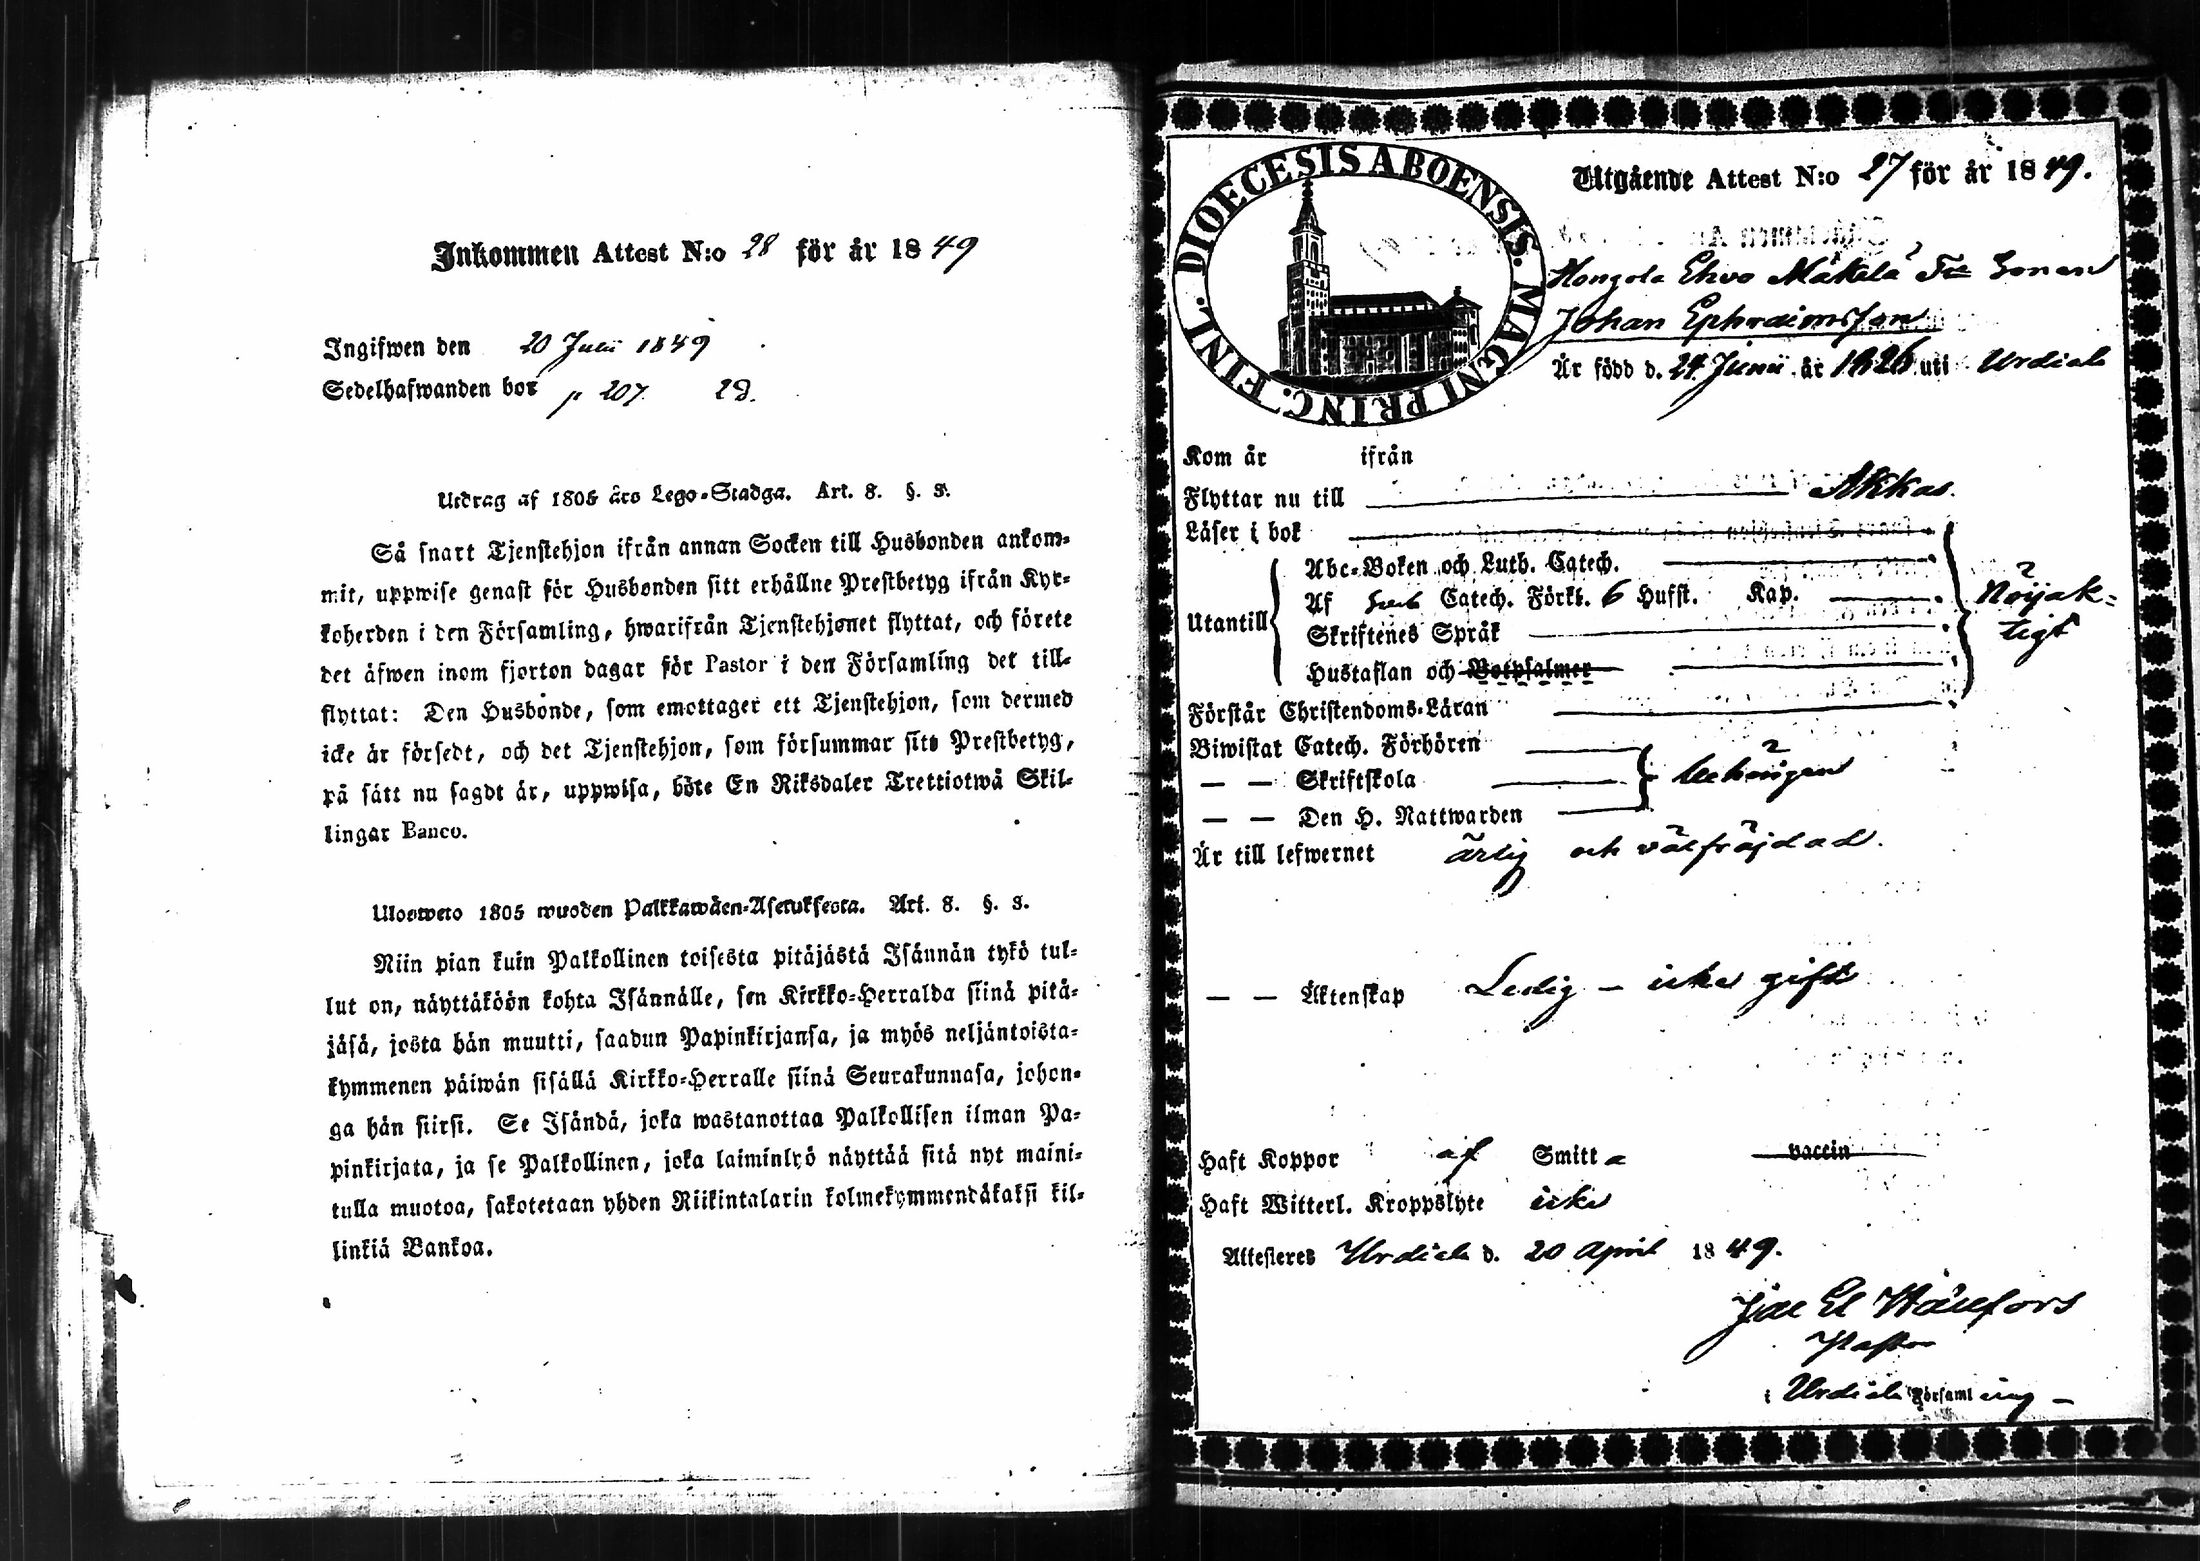 Inkommen Attest N:o 28 för år 1849
Ingifwen den 20 Julii 1849
Sedelhafwanden bor p 207. 28.
Utdrag af 1805 års Lego-Stadga. Art. 8. §. 3.
Så snart Tjenstehjon ifrån annan Socken till Husbonden ankom-
mit, uppwise genast för Husbonden sitt erhållne Prestbetyg ifrån Kyr-
koherden i den Församling, hwarifrån Tjenstehjonet flyttat, och förete
det äfwen inom fjorton dagar för Pastor i den Församling det till-
flyttat: Den Husbonde, som emottager ett Tjenstehjon, som dermed
icke är försedt, och det Tjenstehjon, som försummar sitt Prestbetyg,
på sätt nu sagdt är, uppwisa, böte En Riksdaler Trettiotwå Skil-
lingar Banco.
Ulosweto 1805 wuoden Palkkawäen-Asetuksesta. Art. 8. §. 3.
Niin pian kuin Palkollinen toisesta pitäjästä Isännän tykö tul-
lut on, näyttäköön kohta Isännälle, sen Kirkko-Herralda siinä pitä-
jäsä, josta hän muutti, saadun Papinkirjansa, ja myös neljäntoista-
kymmenen päiwän sisällä Kirkko-Herralle siinä Seurakunnasa, johon-
ga hän siirsi. Se Isändä, joka wastanottaa Palkollisen ilman Pa-
pinkirjata, ja se Palkollinen, joka laiminlyö näyttää sitä nyt maini-
tulla muotoa, sakotetaan yhden Riikintalarin kolmekymmendäkaksi kil-
linkiä Bankoa.
DIOECESIS ABOENSIS. MAGNI PRINC. FINL.
Utgående Attest N:o 27 för år 1849.
Hongola Mäkelä Sonen
Johan Ephraimsson
Är född d. 24 Junii år 1826 uti Urdiala
Kom år ifrån
Flyttar nu till Akkas.
Läser i bok
Utantill
Abc-Boken och Luth. Catech.
Af Catech. Förkl. 6 Hufst. Kap.
Skriftenes Språk
Hustaflan och Botpsalmer
Nöjak-
tigt
Förstår Christendoms-Läran
Biwistat Catech. Förhören
— — Skriftskola
— — Den H. Nattwarden
behörigen
Är till lefwernet ärlig och välfräjdad.
— — Äktenskap Ledig – icke gift
Haft Koppor af Smitta vaccin
Haft Witterl. Kroppslyte icke
Attesteres Urdiala d. 20 April 1849.
Hällfors
Pastor
i Urdiala Församling –